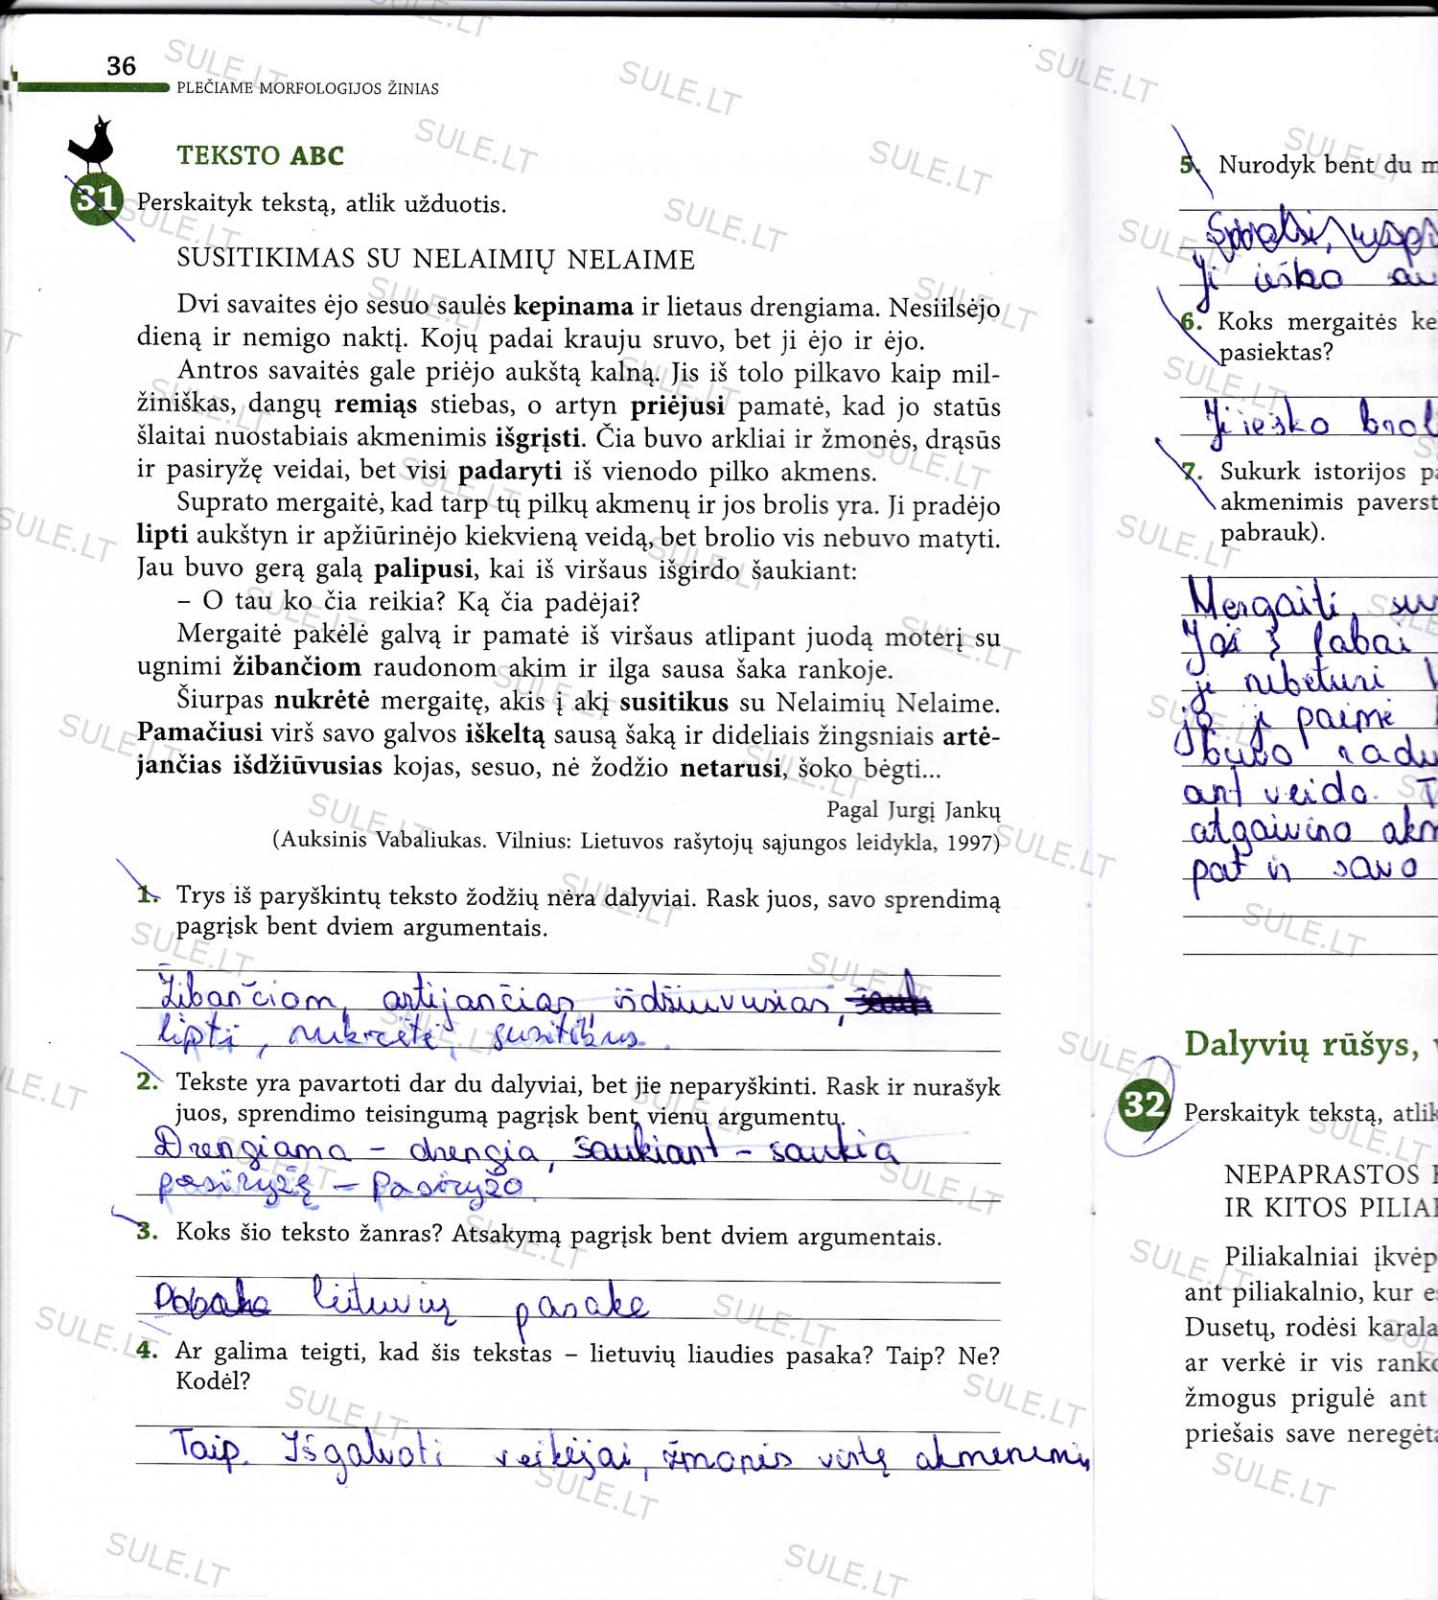 36
PLEČIAME MORFOLOGIJOS ŽINIAS
TEKSTO ABC
31 Perskaityk tekstą, atlik užduotis.
SUSITIKIMAS SU NELAIMIŲ NELAIME
Dvi savaites ėjo sesuo saulės kepinama ir lietaus drengiama. Nesiilsėjo
dieną ir nemigo naktį. Kojų padai krauju sruvo, bet ji ėjo ir ėjo.
Antros savaitės gale priėjo aukštą kalną. Jis iš tolo pilkavo kaip mil-
žiniškas, dangų remiąs stiebas, o artyn priėjusi pamatė, kad jo statūs
šlaitai nuostabiais akmenimis išgrįsti. Čia buvo arkliai ir žmonės, drąsūs
ir pasiryžę veidai, bet visi padaryti iš vienodo pilko akmens.
Suprato mergaitė, kad tarp tų pilkų akmenų ir jos brolis yra. Ji pradėjo
lipti aukštyn ir apžiūrinėjo kiekvieną veidą, bet brolio vis nebuvo matyti.
Jau buvo gerą galą palipusi, kai iš viršaus išgirdo šaukiant:
– O tau ko čia reikia? Ką čia padėjai?
Mergaitė pakėlė galvą ir pamatė iš viršaus atlipant juodą moterį su
ugnimi žibančiom raudonom akim ir ilga sausa šaka rankoje.
Šiurpas nukrėtė mergaitę, akis į akį susitikus su Nelaimių Nelaime.
Pamačiusi virš savo galvos iškeltą sausą šaką ir dideliais žingsniais artė-
jančias išdžiūvusias kojas, sesuo, nė žodžio netarusi, šoko bėgti...
Pagal Jurgį Jankų
(Auksinis Vabaliukas. Vilnius: Lietuvos rašytojų sąjungos leidykla, 1997)
1. Trys iš paryškintų teksto žodžių nėra dalyviai. Rask juos, savo sprendimą
pagrįsk bent dviem argumentais.
Žibančiom, artijančias išdžiuvusias,
lipti, nukrėtė, susitikus.
2. Tekste yra pavartoti dar du dalyviai, bet jie neparyškinti. Rask ir nurašyk
juos, sprendimo teisingumą pagrįsk bent vienu argumentu.
Drengiama – drengia, šaukiant – šaukia
pasiryžę – pasiryžo.
3. Koks šio teksto žanras? Atsakymą pagrįsk bent dviem argumentais.
lietuvių pasaka
4. Ar galima teigti, kad šis tekstas – lietuvių liaudies pasaka? Taip? Ne?
Kodėl?
Taip. Išgalvoti veikėjai, žmonės virtę akmenimis
5. Nurodyk bent du m
Ji ieško
6. Koks mergaitės ke
pasiektas?
Ji ieško brol
7. Sukurk istorijos pa
akmenimis paverst
pabrauk).
Mergaitė, su
labai
ji nebeturi
ji paėmė
buvo radu
ant veido. T
atgaivino akm
pat ir savo
Dalyvių rūšys, v
32 Perskaityk tekstą, atlik
NEPAPRASTOS
IR KITOS PILIA
Piliakalniai įkvėp
ant piliakalnio, kur e
Dusetų, rodėsi karala
ar verkė ir vis ranko
žmogus prigulė ant
priešais save neregėta
SULE.LT